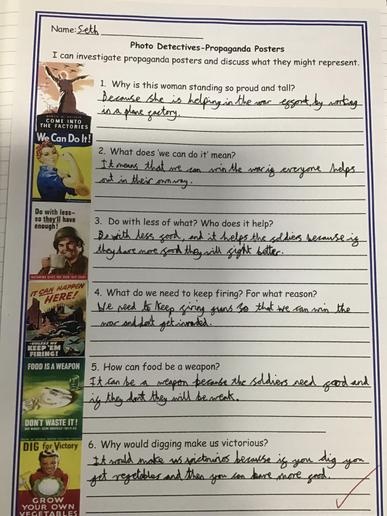 Name: Seth
Photo Detectives-Propaganda Posters
I can investigate propaganda posters and discuss what they might represent.
COME INTO
THE FACTORIES
1. Why is this woman standing so proud and tall?
Because she is helping in the war effort by working
in a plane factory.
We Can Do It!
2. What does 'we can do it' mean?
It means that we can win the war if everyone helps
out in their own way.
Do with less–
so they'll have
enough!
3. Do with less of what? Who does it help?
Do with less food, and it helps the soldiers because if
they have more food they will fight better.
IT CAN HAPPEN
HERE!
KEEP 'EM
FIRING!
4. What do we need to keep firing? For what reason?
We need to keep firing guns so that we can win the
war and dont get invaded.
FOOD IS A WEAPON
DON'T WASTE IT!
5. How can food be a weapon?
It can be a weapon because the soldiers need food and
if they dont they will be weak.
DIG for Victory
GROW
YOUR OWN
VEGETABLES
6. Why would digging make us victorious?
It would make us victorios because if you dig you
get vegetables and then you can have more food.